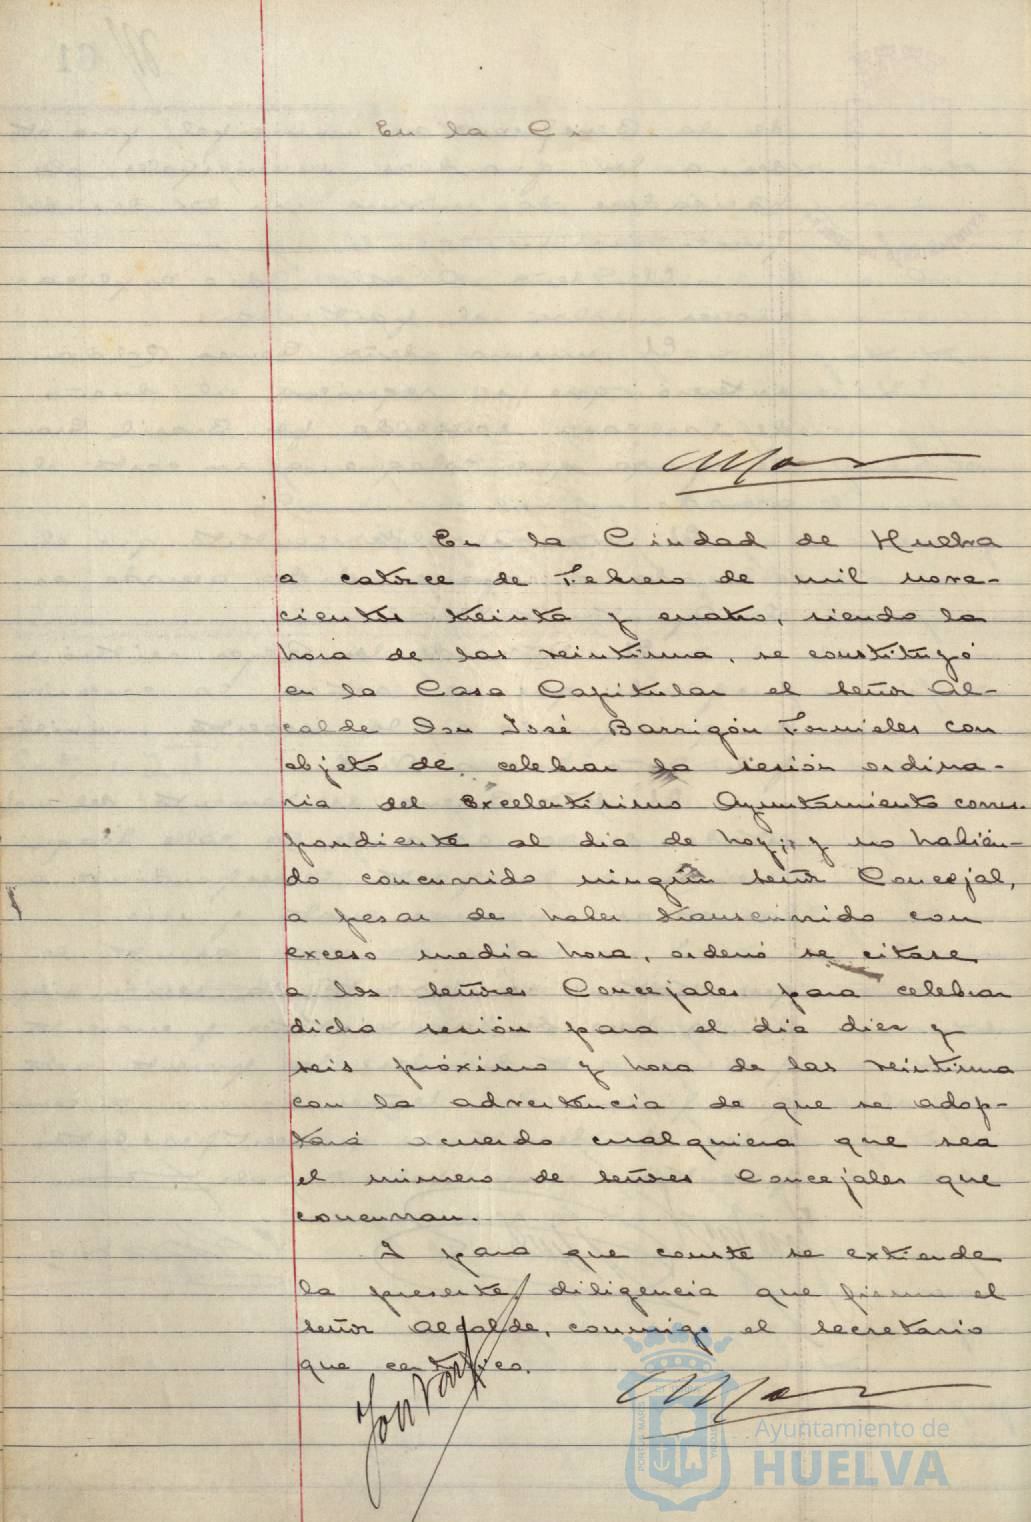 En la Ci
En la Ciudad de Huelva
a catorce de Febrero de mil nove-
cientos treinta y cuatro, siendo la
hora de las veintiuna, se constituyó
en la Casa Capitular el señor Al-
calde Don José Barrigón Fornieles con
objeto de celebrar la sesión ordina-
ria del Excelentísimo Ayuntamiento corres-
pondiente al dia de hoy; y no habién-
do concurrido ningún señor Concejal,
a pesar de haber transcurrido con
exceso media hora, ordenó se citase
a los señores Concejales para celebrar
dicha sesión para el dia diez y
seis próximo y hora de las veintiuna
con la advertencia de que se adop-
tará acuerdo cualquiera que sea
el número de señores Concejales que
concurran.
I para que conste se extiende
la presente diligencia que firma el
señor Alcalde, conmigo el secretario
que certifico.
Ayuntamiento de
HUELVA